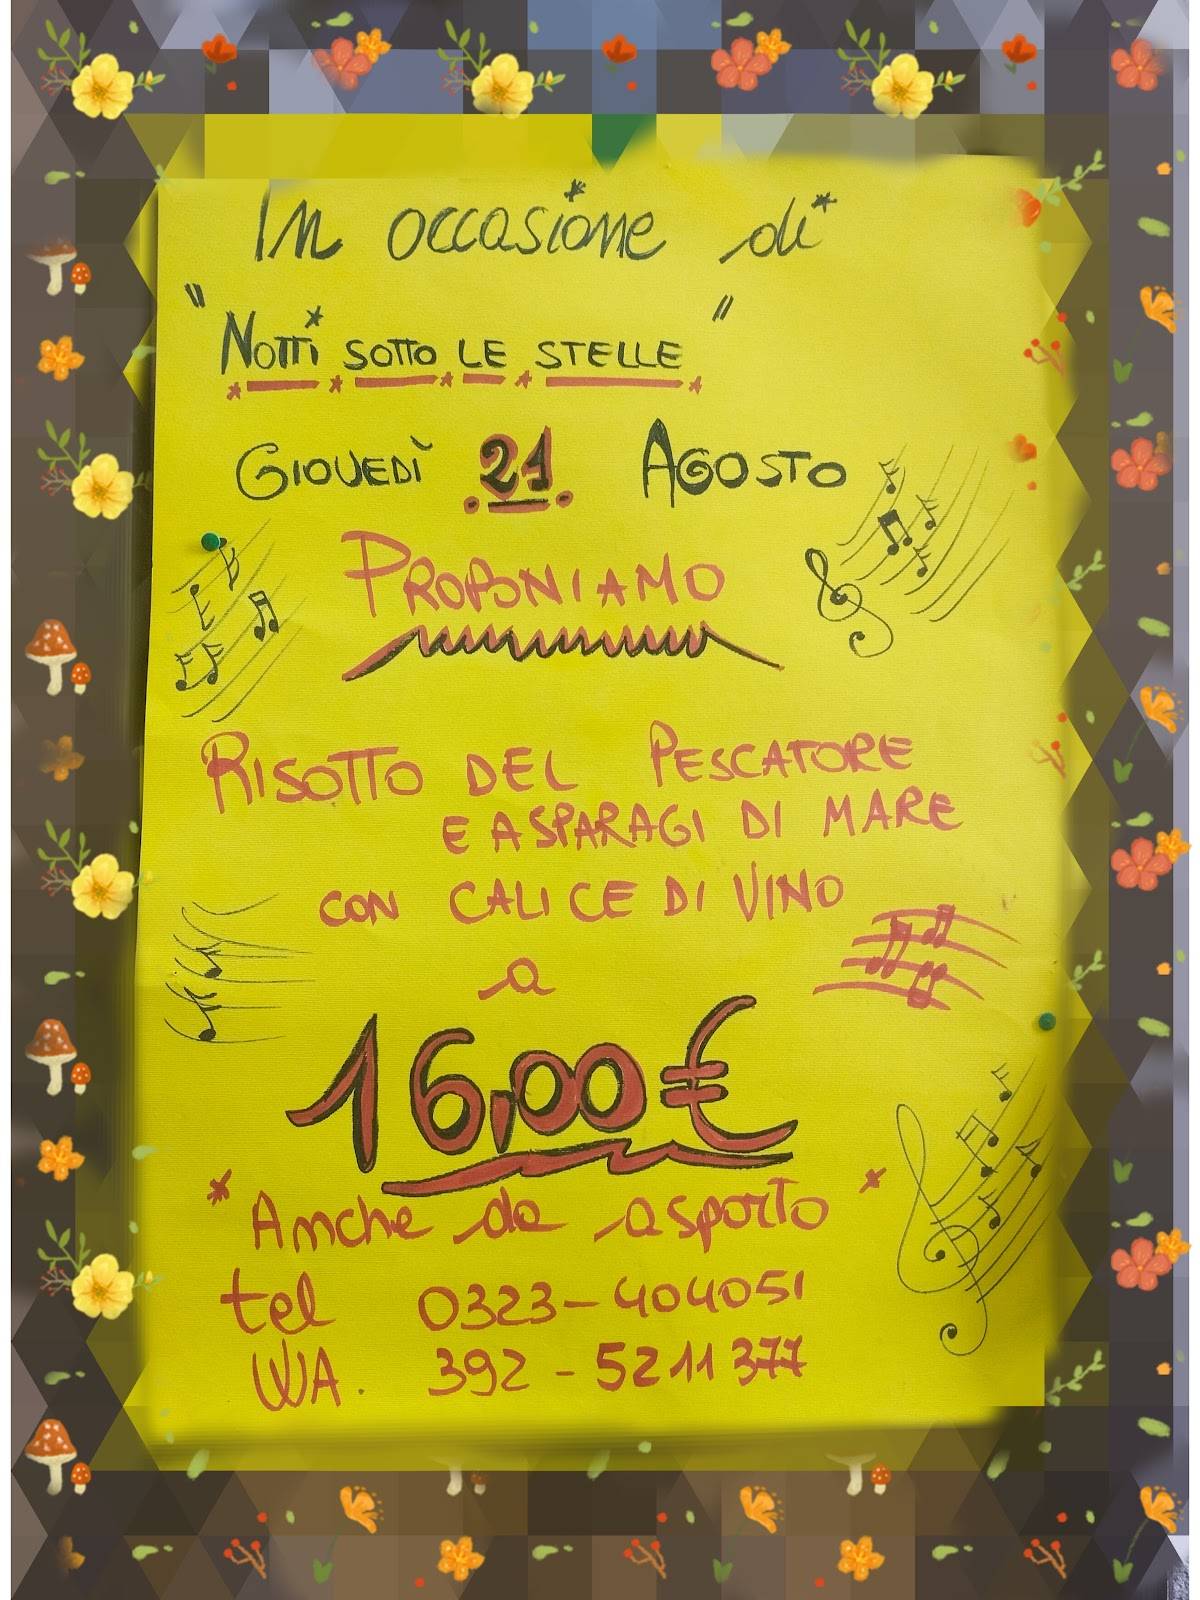 In occasione di
"Notti sotto le stelle"
Giovedì 21 Agosto
Proponiamo
Risotto del Pescatore
e asparagi di mare
con calice di vino
a
16,00 €
* Anche da asporto *
tel 0323-404051
WA. 392-5211377